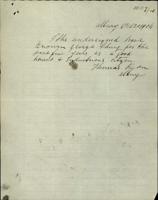 Albury Oct 21 1914
I the undersigned have
known George Ching for the
past few years as a good
honest & industrious citizen
Thomas
Albury